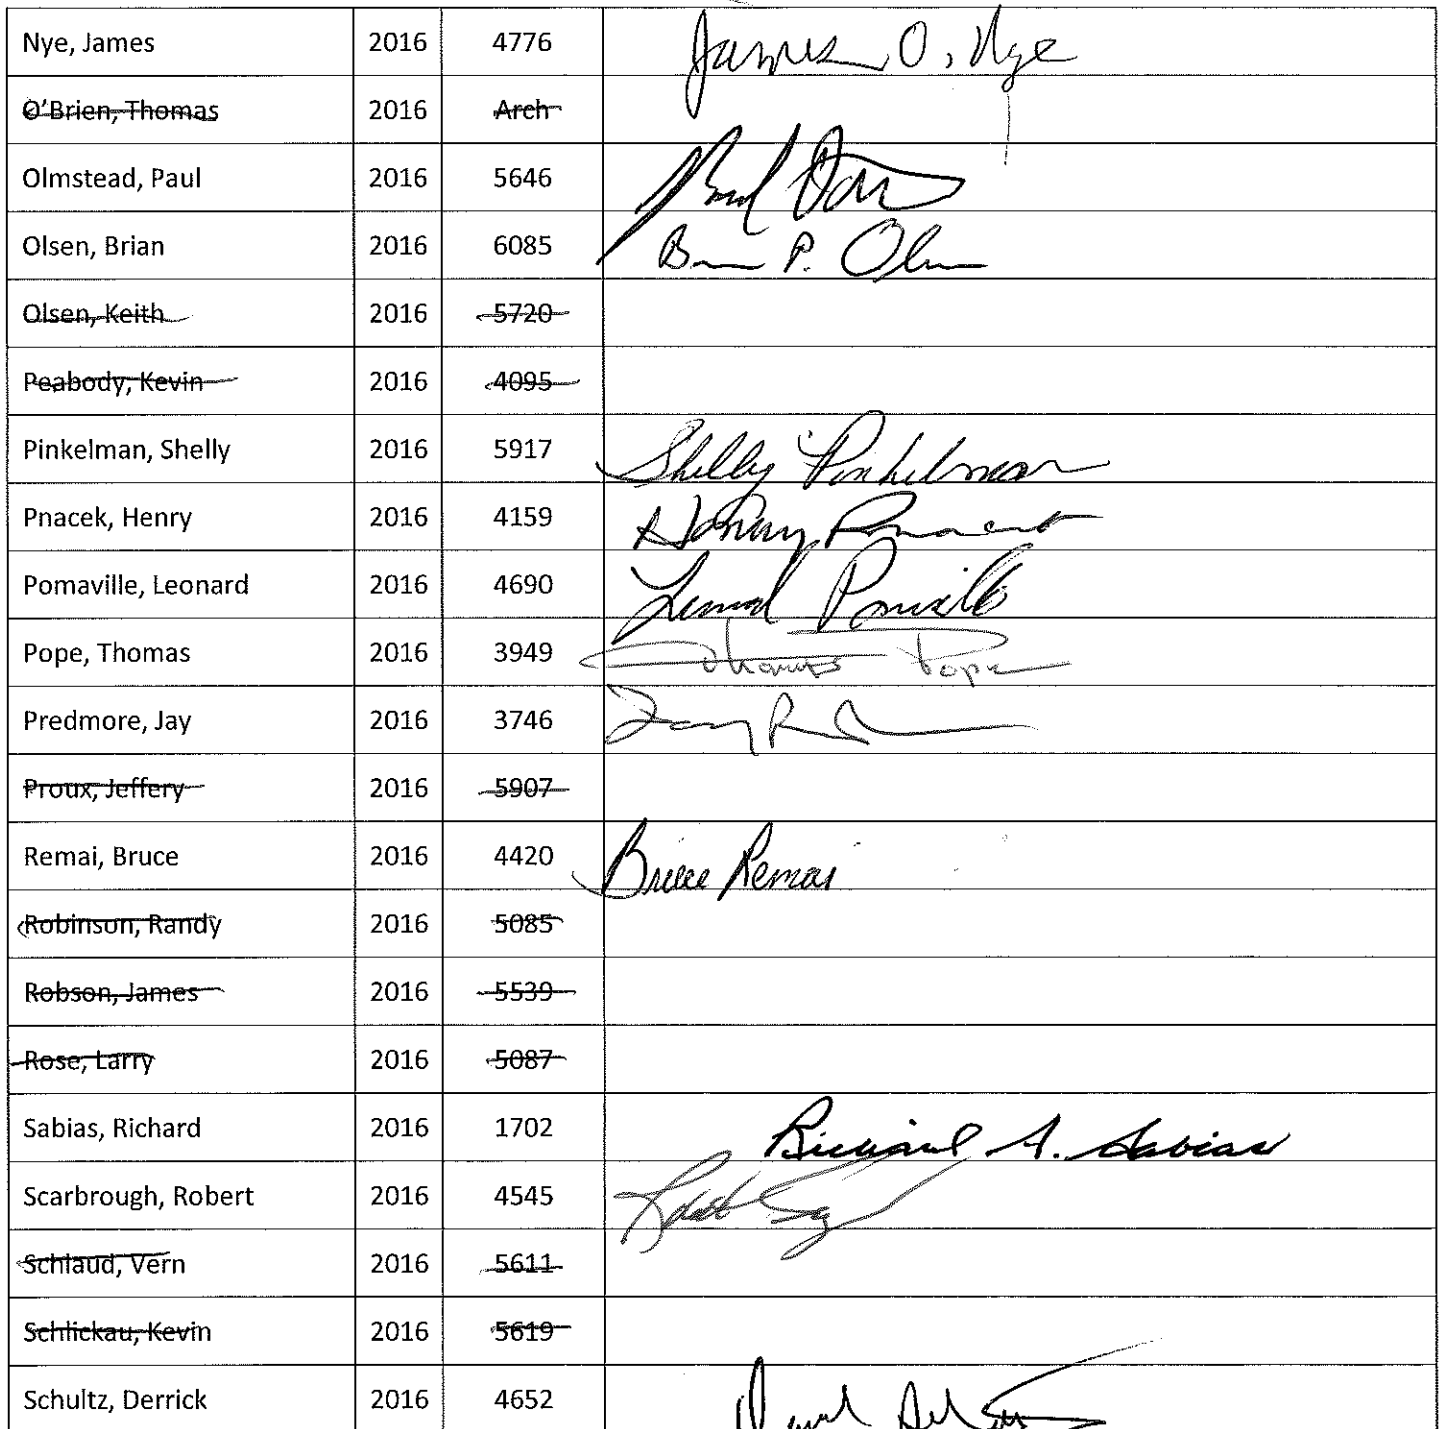 Nye, James 2016 4776 James O. Nye
O'Brien, Thomas 2016 Arch
Olmstead, Paul 2016 5646 Paul
Olsen, Brian 2016 6085 B P. Olsen
Olsen, Keith 2016 5720
Peabody, Kevin 2016 4095
Pinkelman, Shelly 2016 5917 Shelly Pinkelman
Pnacek, Henry 2016 4159 Henry
Pomaville, Leonard 2016 4690
Pope, Thomas 2016 3949 Thomas Pope
Predmore, Jay 2016 3746
Proux, Jeffery 2016 5907
Remai, Bruce 2016 4420 Bruce Remai
Robinson, Randy 2016 5085
Robson, James 2016 5539
Rose, Larry 2016 5087
Sabias, Richard 2016 1702 Richard A. Sabias
Scarbrough, Robert 2016 4545
Schlaud, Vern 2016 5611
Schlickau, Kevin 2016 5619
Schultz, Derrick 2016 4652